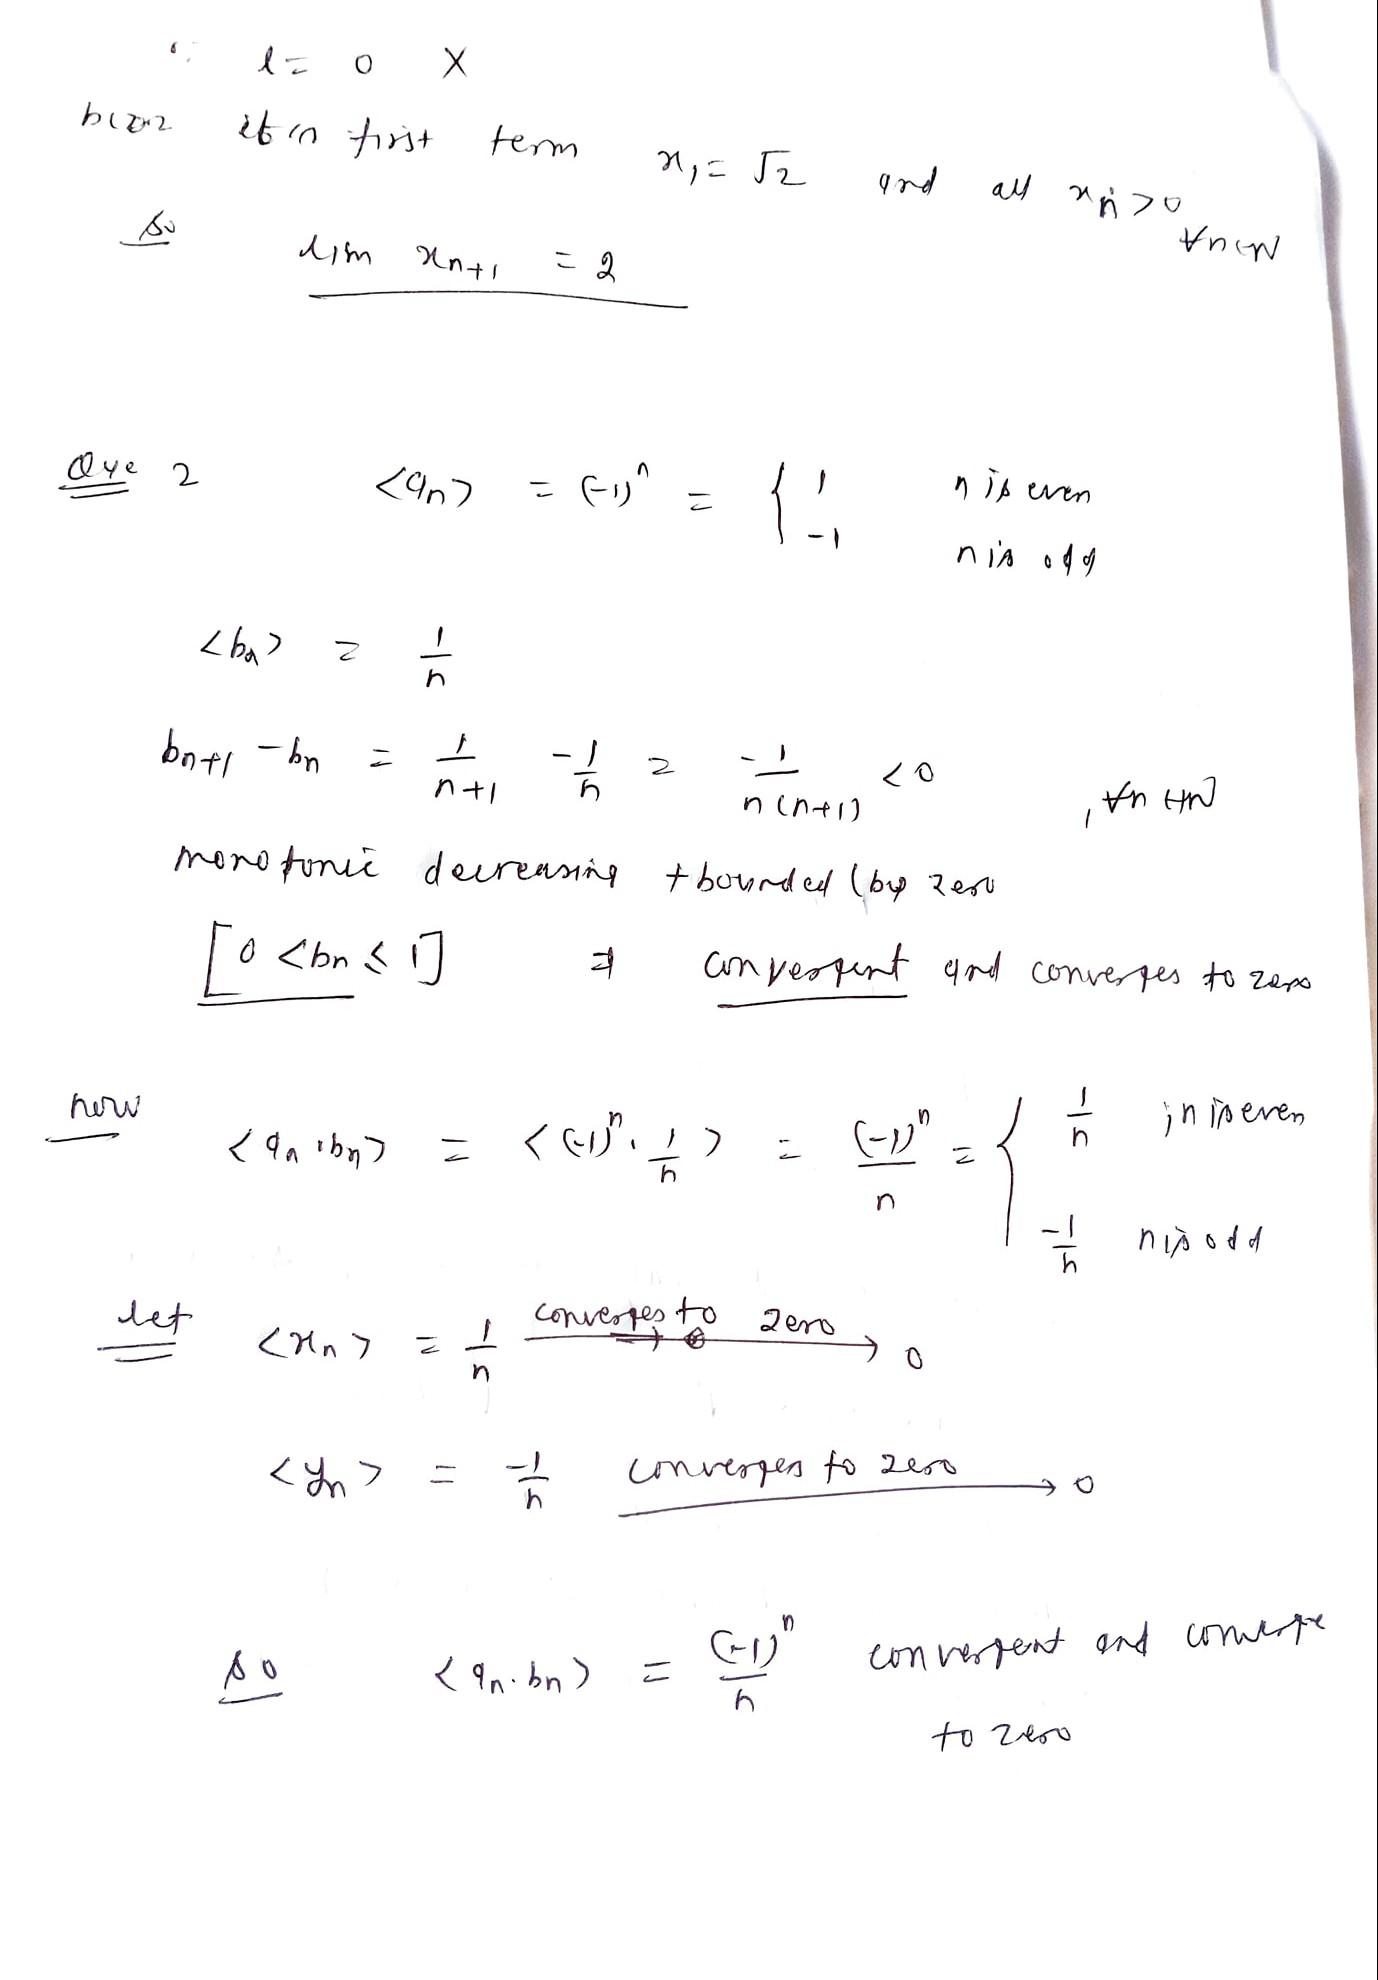 ∵ l = 0 X
its first term x₁ = √2 and all xₙ > 0 ∀n∈N
so
lim xₙ₊₁ = 2
Que 2 <aₙ> = (-1)ⁿ = { 1 n is even
-1 n is odd
<bₙ> = 1/n
bₙ₊₁ - bₙ = 1/(n+1) - 1/n = -1/(n(n+1)) < 0 , ∀n∈N
monotonic decreasing + bounded (by zero
[0 < bₙ ≤ 1] ⇒ convergent and converges to zero
now <aₙ.bₙ> = <(-1)ⁿ. 1/n> = (-1)ⁿ/n = { 1/n ; n is even
-1/n n is odd
let <xₙ> = 1/n converges to zero → 0
<yₙ> = -1/n converges to zero → 0
so <aₙ.bₙ> = (-1)ⁿ/n convergent and converge
to zero